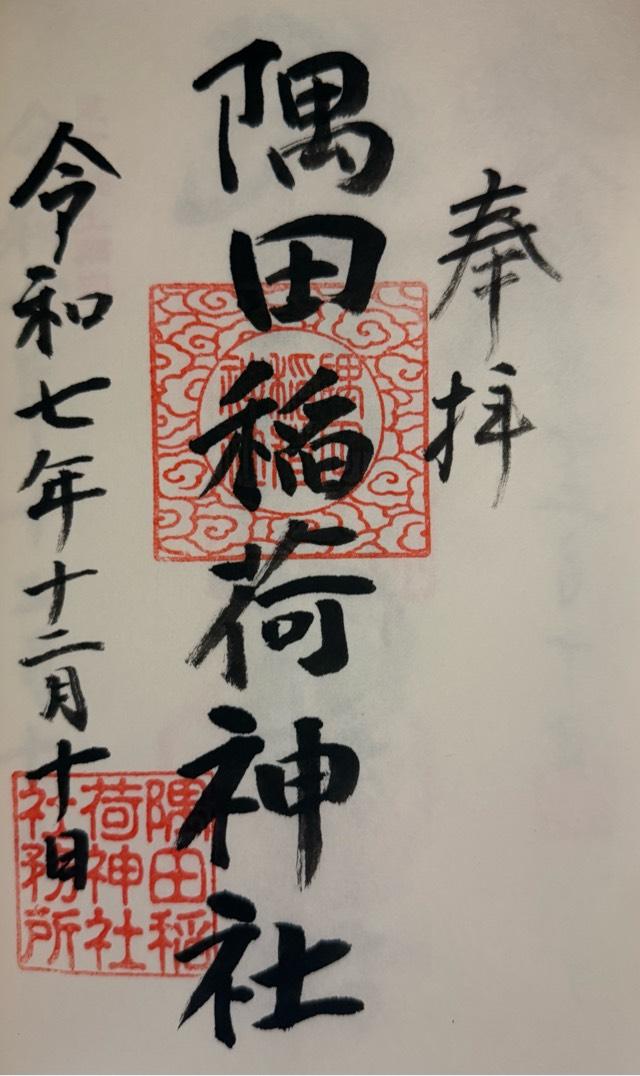 奉拝
隅田稲荷神社
隅田稲荷神社
令和七年十二月十日
隅田稲
荷神社
社務所